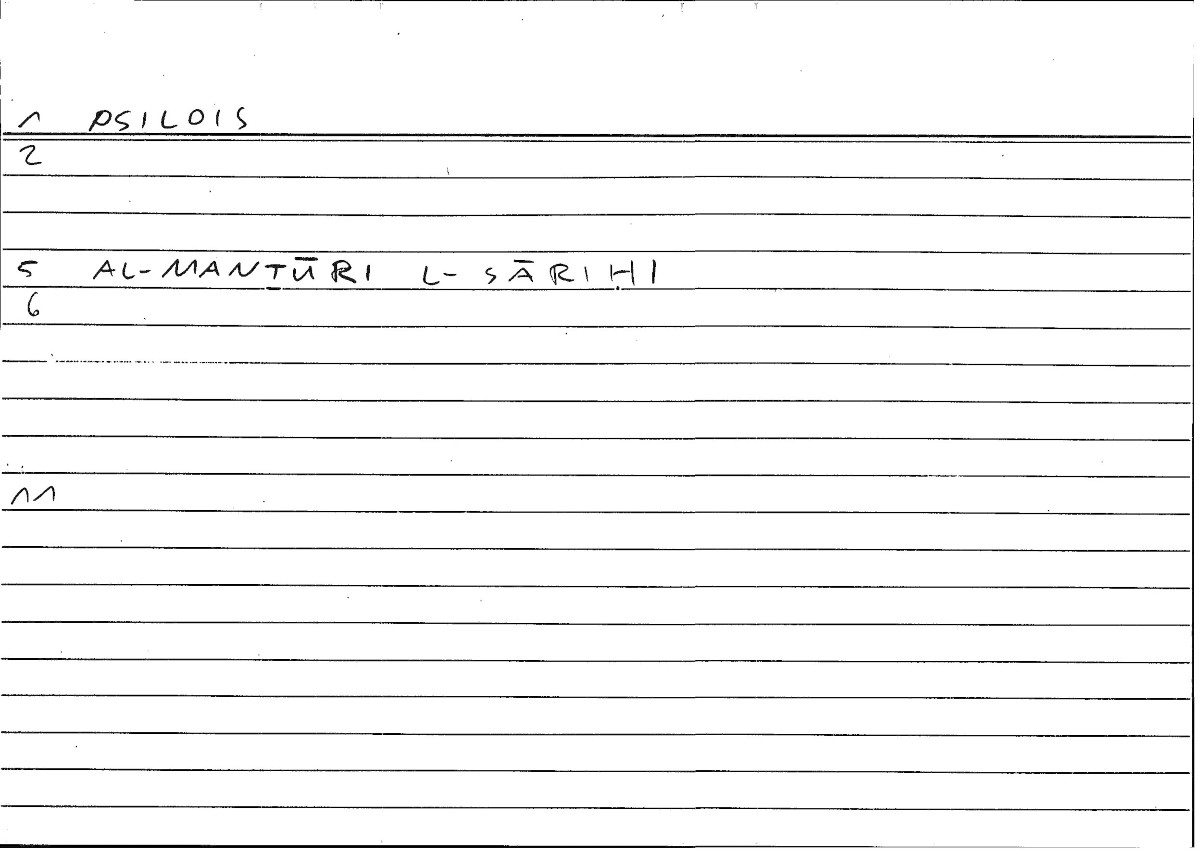 1 PSILOIS
2
5 AL-MANṮŪRI L-SĀRIḤI
6
11